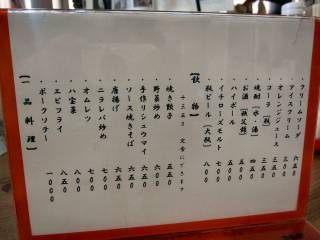 ・クリームソーダ 六五〇
・アイスクリーム 三五〇
・オレンジジュース 三五〇
・コーラ 【瓶】 三五〇
・焼酎 【水・湯】 四五〇
・お酒 【秩父錦】 五〇〇
・ハイボール 五〇〇
・イチローズモルト 七〇〇
・瓶ビール 【大瓶】 八〇〇
【飲 物】
十三五〇 定食にできます
・焼き餃子 五五〇
・野菜炒め 六五〇
・手作りシュウマイ 六五〇
・ソース焼きそば 六五〇
・唐揚げ 六五〇
・ニラレバ炒め 七〇〇
・オムレツ 七〇〇
・八宝菜 八〇〇
・エビフライ 八五〇
・ポークソテー 一〇〇〇
【一 品 料 理】